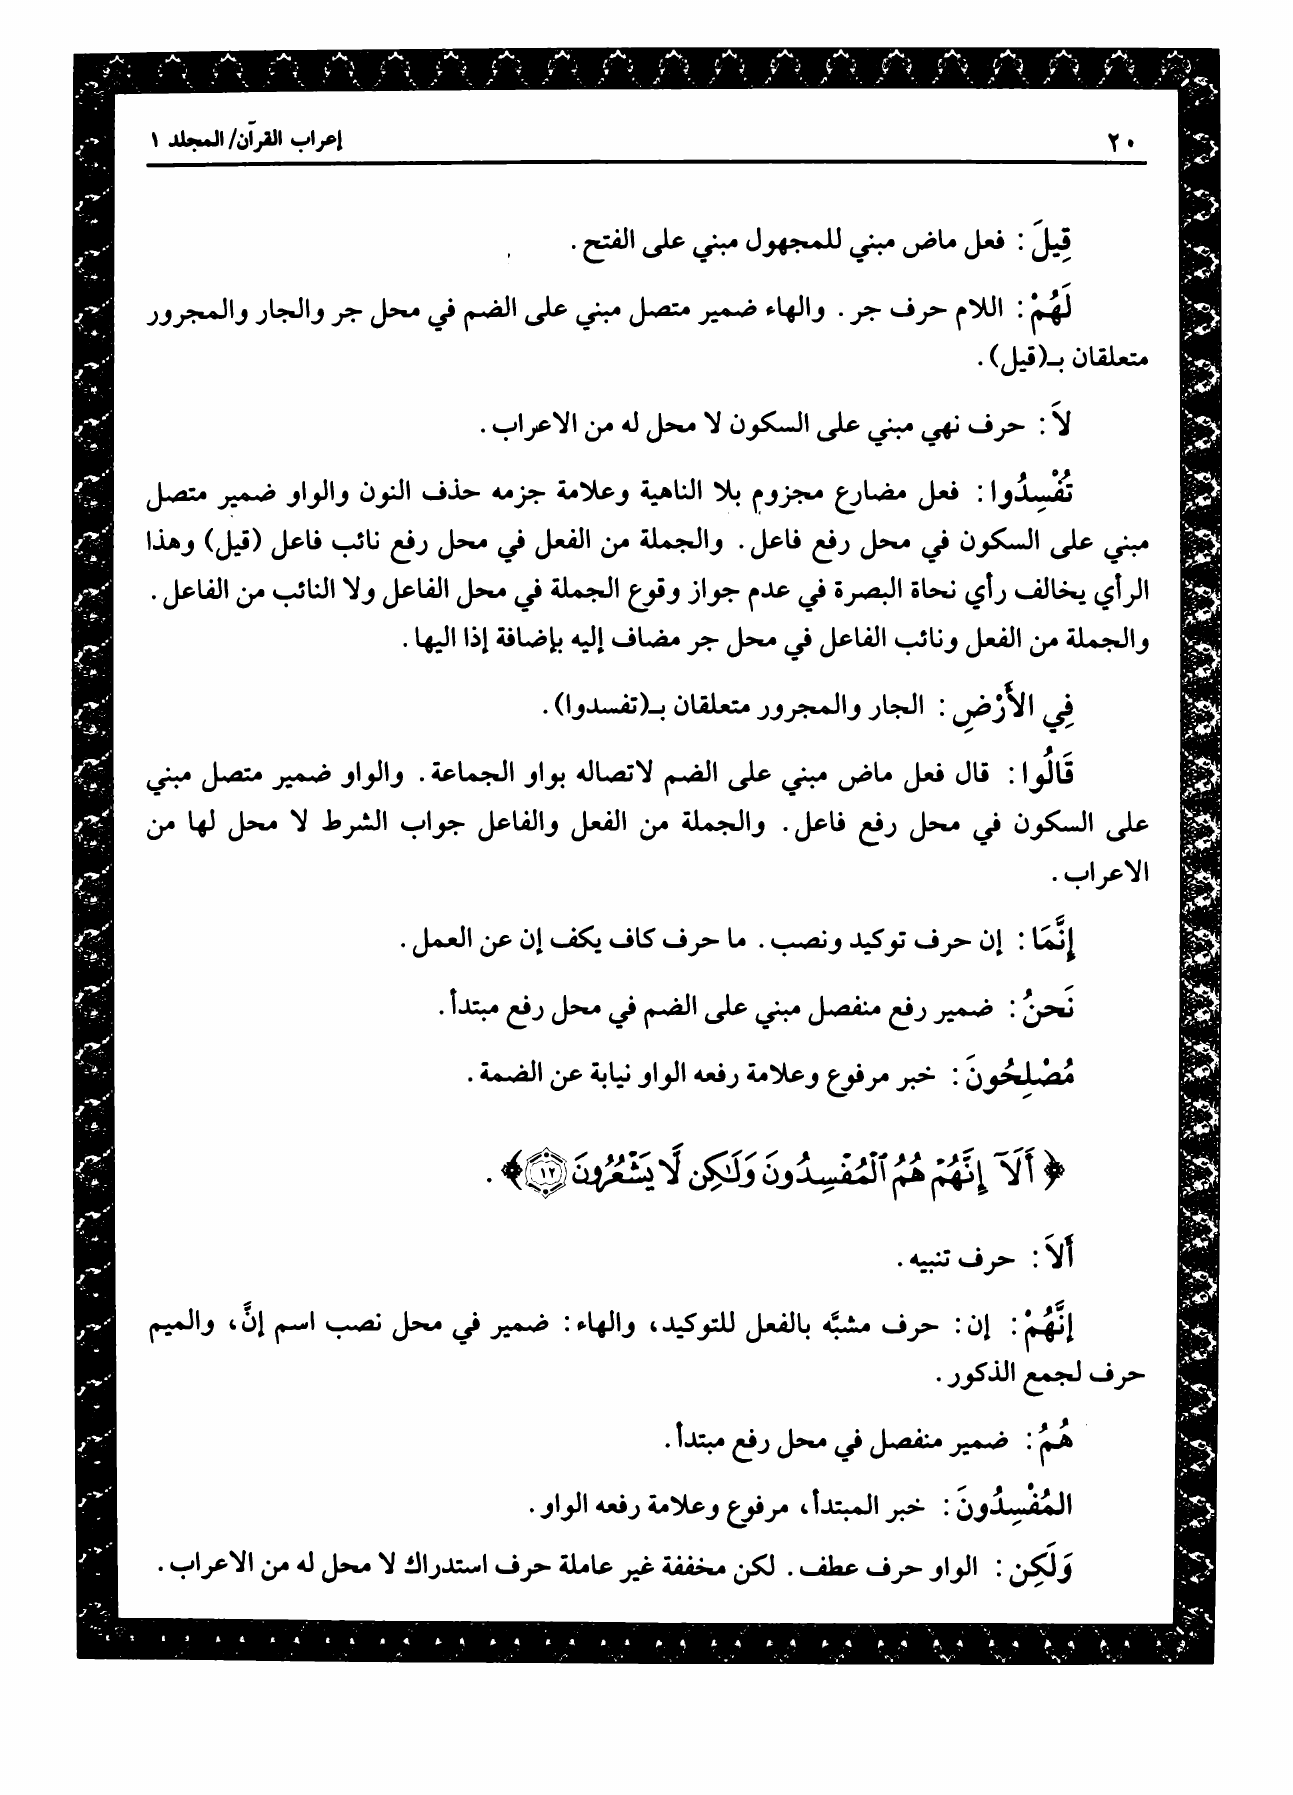 ٢٠
إعراب القرآن/ المجلد ١
قِيلَ: فعل ماض مبني للمجهول مبني على الفتح.
لَهُمْ: اللام حرف جر. والهاء ضمير متصل مبني على الضم في محل جر والجار والمجرور
متعلقان بـ(قيل).
لاَ: حرف نهي مبني على السكون لا محل له من الاعراب.
تُفْسِدُوا: فعل مضارع مجزوم بلا الناهية وعلامة جزمه حذف النون والواو ضمير متصل
مبني على السكون في محل رفع فاعل. والجملة من الفعل في محل رفع نائب فاعل (قيل) وهذا
الرأي يخالف رأي نحاة البصرة في عدم جواز وقوع الجملة في محل الفاعل ولا النائب من الفاعل.
والجملة من الفعل ونائب الفاعل في محل جر مضاف إليه بإضافة إذا اليها.
فِي الأَرْضِ: الجار والمجرور متعلقان بـ(تفسدوا).
قَالُوا: قال فعل ماض مبني على الضم لاتصاله بواو الجماعة. والواو ضمير متصل مبني
على السكون في محل رفع فاعل. والجملة من الفعل والفاعل جواب الشرط لا محل لها من
الاعراب.
إِنَّمَا: إن حرف توكيد ونصب. ما حرف كاف يكف إن عن العمل.
نَحنُ: ضمير رفع منفصل مبني على الضم في محل رفع مبتدأ.
مُصْلِحُونَ: خبر مرفوع وعلامة رفعه الواو نيابة عن الضمة.
﴿أَلَآ إِنَّهُمْ هُمُ ٱلْمُفْسِدُونَ وَلَٰكِن لَّا يَشْعُرُونَ ١٢﴾.
أَلاَ: حرف تنبيه.
إِنَّهُمْ: إن: حرف مشبَّه بالفعل للتوكيد، والهاء: ضمير في محل نصب اسم إنَّ، والميم
حرف لجمع الذكور.
هُمُ: ضمير منفصل في محل رفع مبتدأ.
المُفْسِدُونَ: خبر المبتدأ، مرفوع وعلامة رفعه الواو.
وَلَكِن: الواو حرف عطف. لكن مخففة غير عاملة حرف استدراك لا محل له من الاعراب.